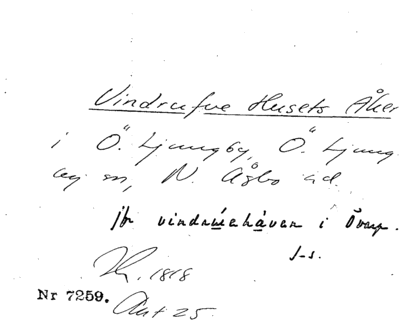 Vindrufve Husets Åker
i Ö. Ljungby, Ö. Ljung
by sn, N. Åsbo hd.
jfr vindruehàven i Övarp.
J-s.
1818
Nr 7259. Akt 25